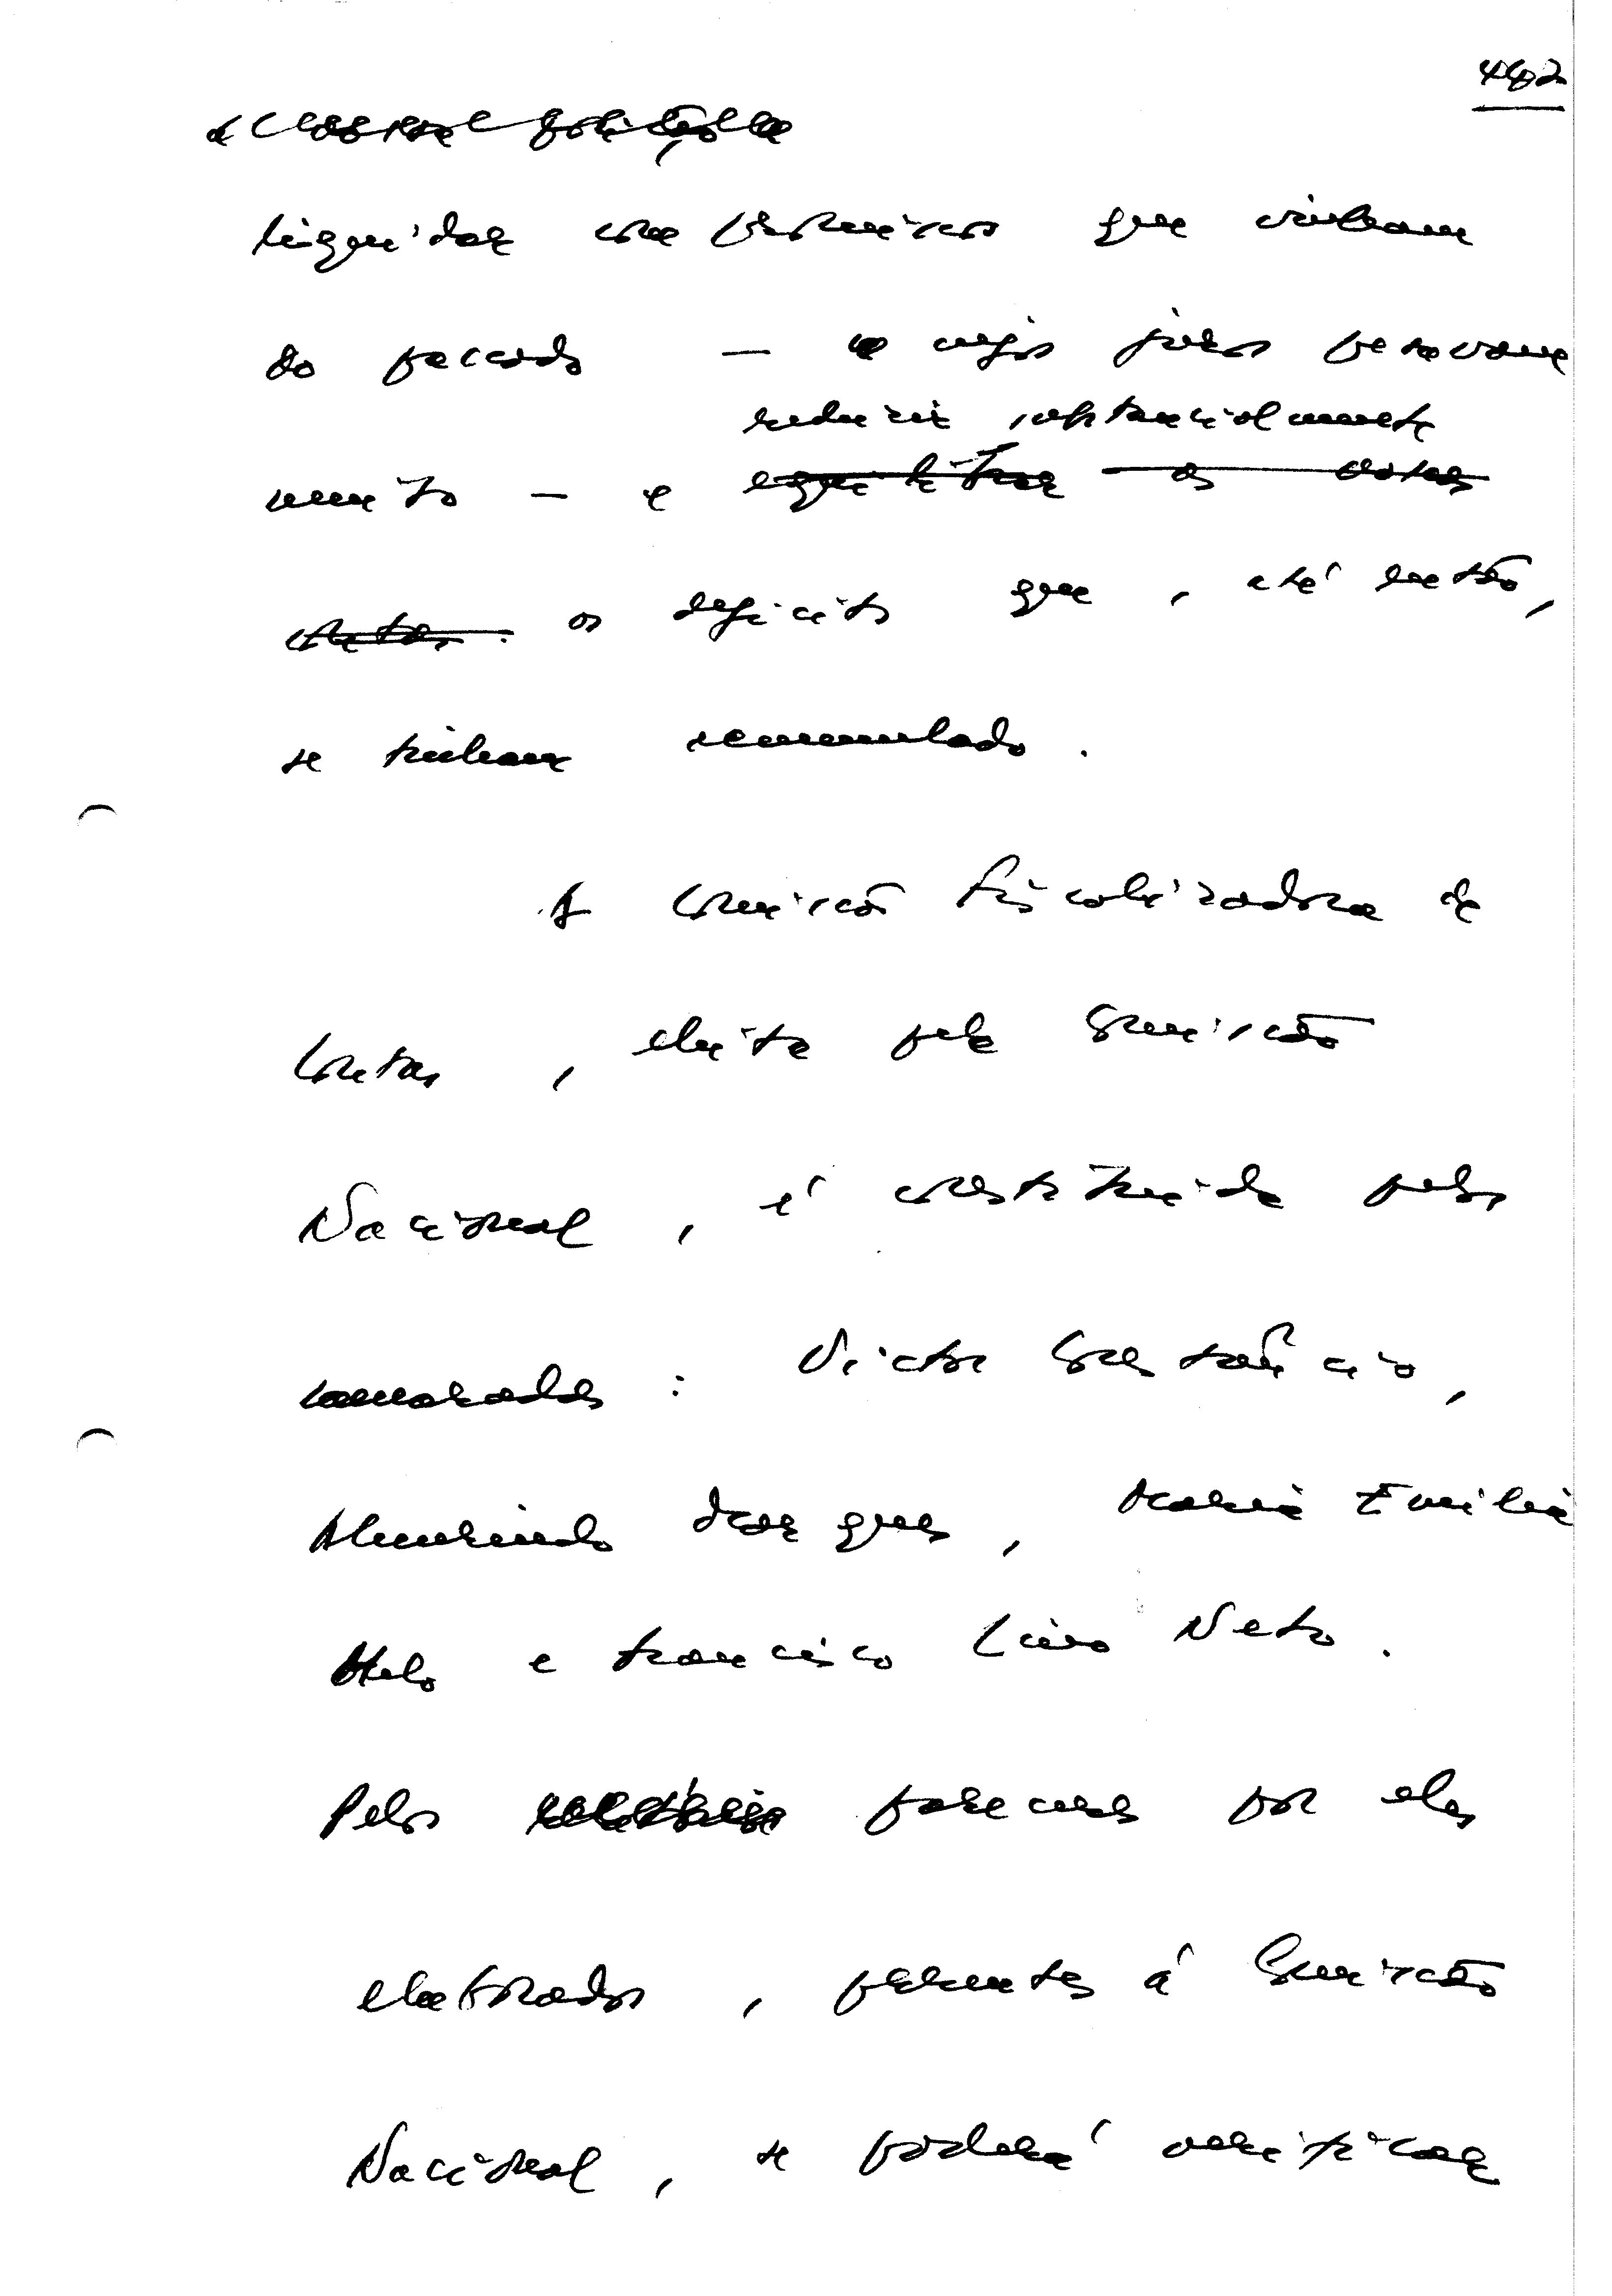 442
liquidar compromissos que vinham
do passado — cujos juros pesavam
reduzir substancialmente
muito — e equilibrar as contas
os deficits que, até então,
se tinham acumulado.
A Comissão Fiscalizadora de
Contas, eleita pela Comissão
Nacional, é constituída pelos
camaradas: Victor Constâncio,
Almerindo Marques, Maria Emília
Melo e Francisco Lino Neto.
Pelos pareceres por eles
elaborados, presentes à Comissão
Nacional, se poderá verificar